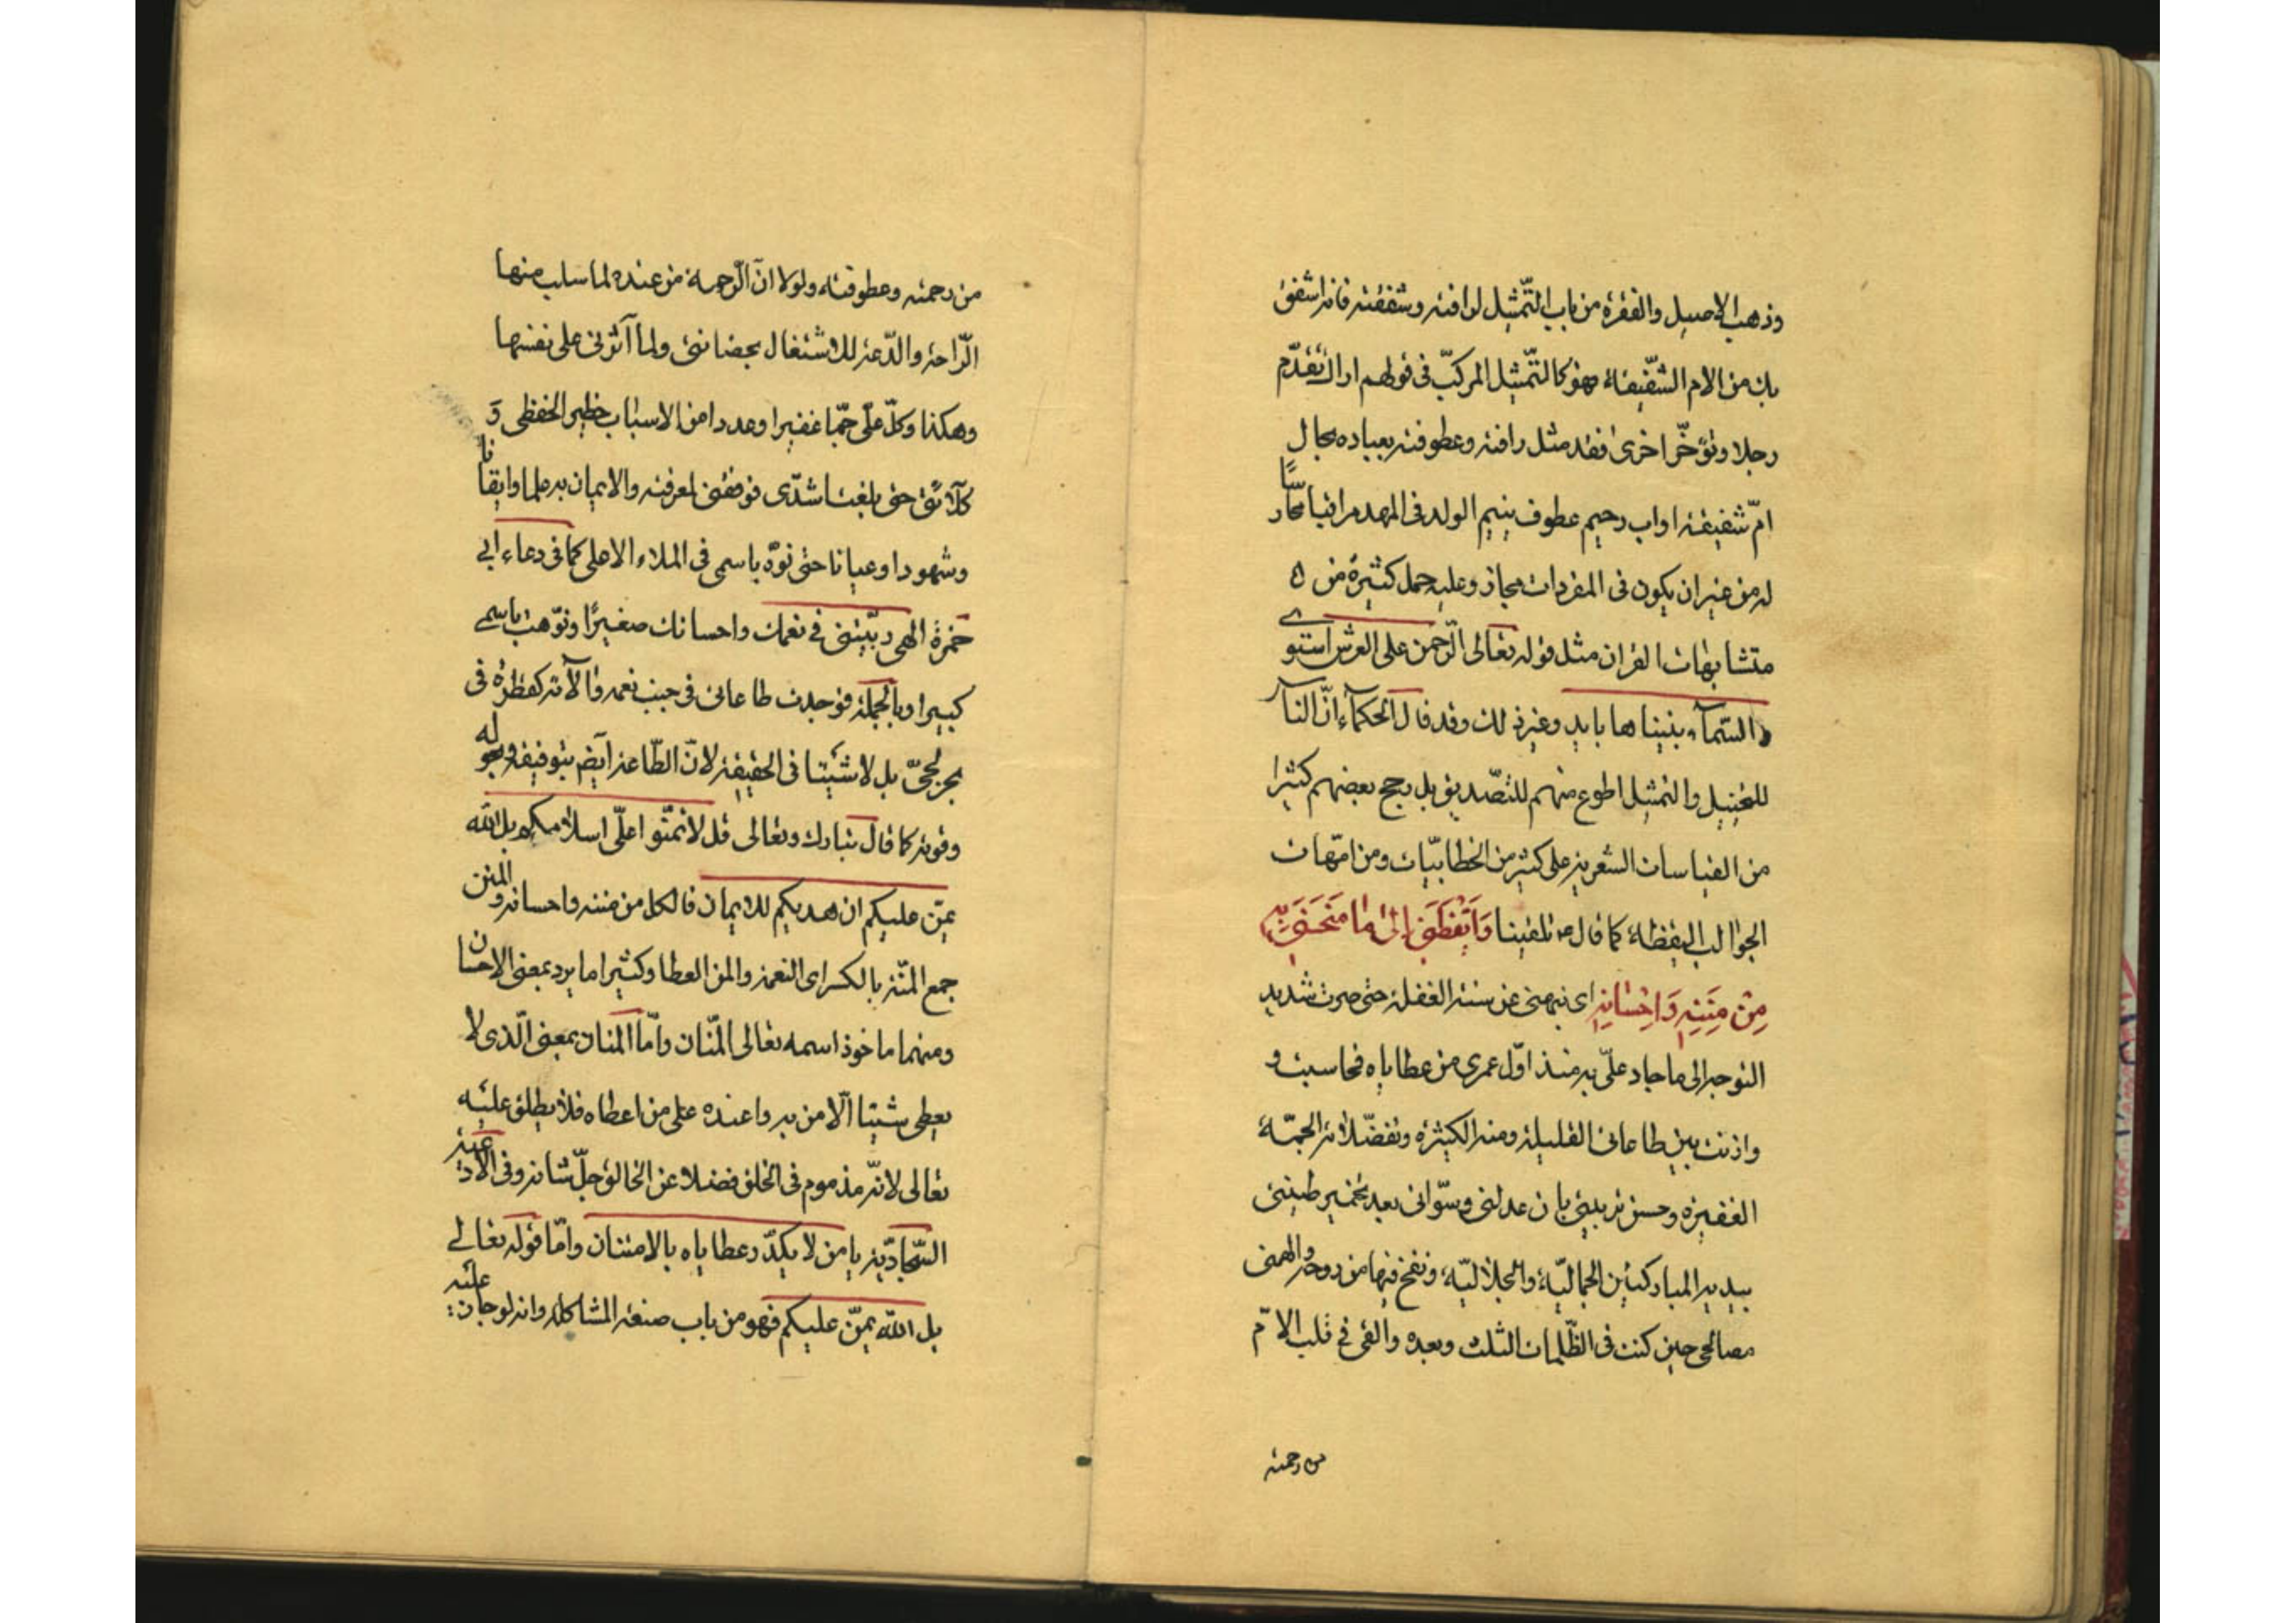 وذهب الاصيل والفقرة من باب التّمثيل لرافته وشفقته فانه اشفق
بك من الام الشّفيقة فهو كالتّمثيل المركبّ فى قولهم اراك تقدّم
رجلا وتؤخّر اخرى فقد مثل رافته وعطوفته بعباده بحال
امّ شفيقة او اب رحيم عطوف ينيم الولد فى المهد مراقبا حارسًا
له من غير ان يكون فى المفردات مجاز وعليه حمل كثيرة من
متشابهات القران مثل قوله تعالى الرّحمن على العرش استوى
والسّمآء بنيناها بايد وغير ذلك وقد قال الحكمآء انّ النآس
للتخييل والتمثيل اطوع منهم للتصّديق بل رجح بعضهم كثيرا
من القياسات الشعريه على كثير من الخطابيّات ومن امّهات
الجوالب اليقظة كما قال تلقينا وَاَيْقَظَنى اِلىٰ مٰا مَنَحَنى بِهِ
مِنْ مِنَنِهِ وَاِحْسٰانِهِ اى نبهنى عن سنة الغفلة حتى صرت شديد
التوجه الى ما جاد علىّ به منذ اوّل عمرى من عطاياه فحاسبت و
وازنت بين طاعاتى القليلة ومننه الكثيره وتفضّلاته الجمّة
الغفيره وحسن تربيتى بان عدلنى وسوّانى بعد تخمير طينتى
بيديه المباركتين الجماليّة والجلاليّة ونفخ فيها من روحه والهمنى
مصالحى حين كنت فى الظّلمات الثلث وبعده والقى فى قلب الامّ
من رحمته
من رحمته وعطوفته ولولا انّ الرّحمة من عنده لما سلب منها
الرّاحة والدّعة للاشتغال بحضانتى ولما آثرنى على نفسها
وهكذا وكلّ علىّ جمّا غفيرا وعددا من الاسباب خطير الحفظى و
كلآئتى حتى بلغت اشدّى فوفقنى لمعرفته والايمان به علما وايقانا
وشهودا وعيانا حتى نوّه باسمى فى الملاء الاعلى كما فى دعاء ابى
حمزة الهى ربّيتنى فى نعمك واحسانك صغيرًا ونوّهت باسمى
كبيرا وبالجملة فوجدت طاعاتى فى جنب نعمه وآلآئه كقطرة فى
بحر لجىّ بل لا شيئا فى الحقيقة لانّ الطّاعة ايضا بتوفيقه وحوله
وقوته كما قال تبارك وتعالى قل لا تمنّوا علىّ اسلامكم بل الله
يمنّ عليكم ان هديكم للايمان فالكل من مننه واحسانه والمنن
جمع المنّة بالكسر اى النعمة والمن العطا وكثيرا ما يرد بمعنى الاحسان
ومنهما ماخوذ اسمه تعالى المنّان وامّا المنان بمعنى الّذى لا
يعطى شيئا الّا من به واعتده على من اعطاه فلا يطلق عليه
تعالى لانّه مذموم فى الخلق فضلا عن الخالق جلّ شانه وفى الادعية
السّجاديّة يا من لا يكدّر عطاياه بالامتنان وامّا قوله تعالى
بل الله يمنّ عليكم فهو من باب صنعة المشاكله وانه لو جاز عليه